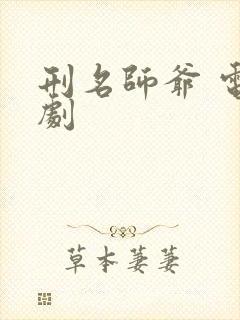 刑名師爺 電
劇
草本萋萋